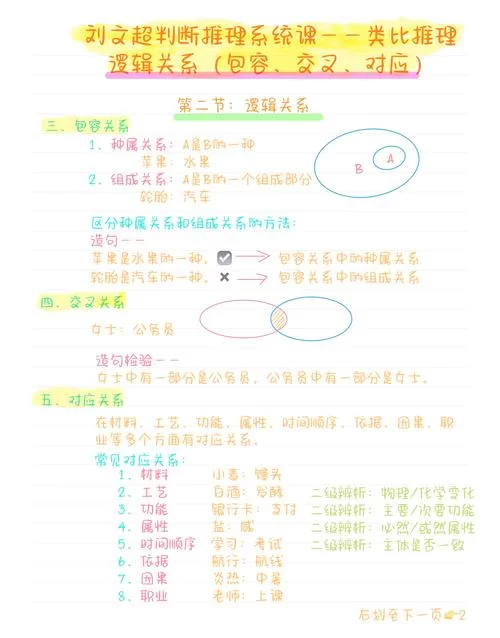 刘文超判断推理系统课——类比推理
逻辑关系（包容、交叉、对应）
第二节：逻辑关系
三、包容关系
1、种属关系：A是B的一种
苹果：水果
2、组成关系：A是B的一个组成部分
轮胎：汽车
B
A
区分种属关系和组成关系的方法：
造句——
苹果是水果的一种。 包容关系中的种属关系
轮胎是汽车的一种。 包容关系中的组成关系
四、交叉关系
女士：公务员
造句检验——
女士中有一部分是公务员，公务员中有一部分是女士。
五、对应关系
在材料、工艺、功能、属性、时间顺序、依据、因果、职
业等多个方面有对应关系。
常见对应关系：
1、材料 小麦：馒头
2、工艺 白酒：发酵 二级辨析：物理/化学变化
3、功能 银行卡：支付 二级辨析：主要/次要功能
4、属性 盐：咸 二级辨析：必然/或然属性
5、时间顺序 学习：考试 二级辨析：主体是否一致
6、依据 航行：航线
7、因果 炎热：中暑
8、职业 老师：上课
右划至下一页👉2